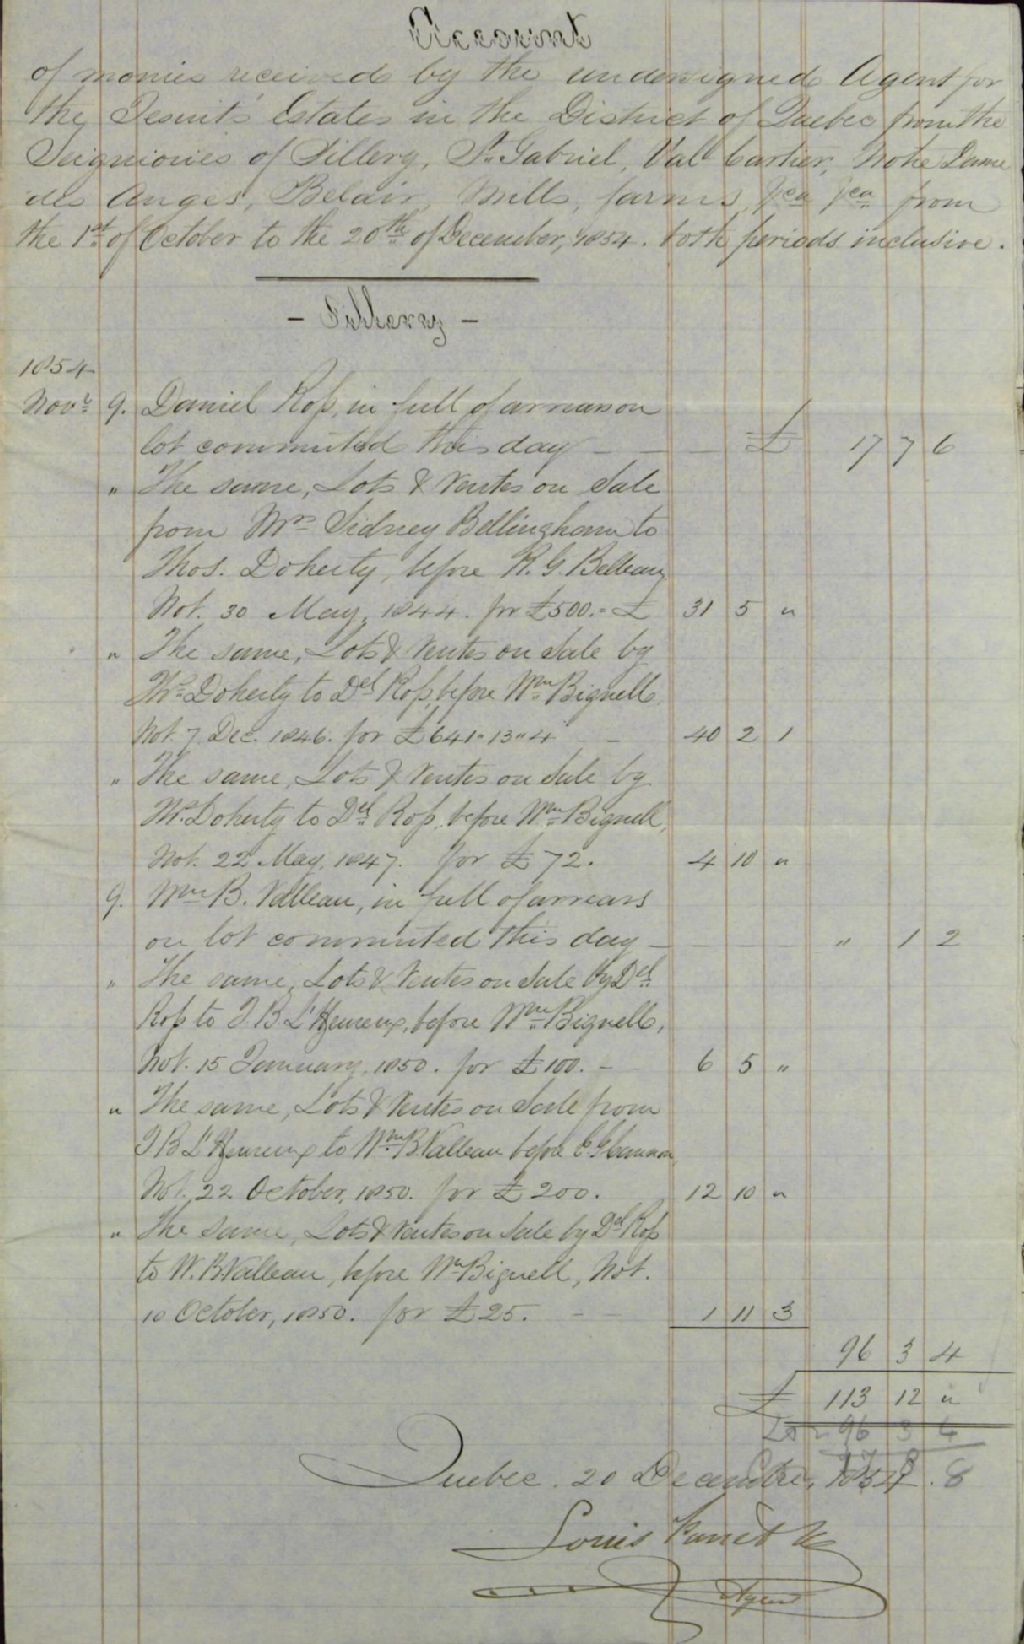 Account
of monies received by the undersigned Agent for
the Jesuits' Estates in the District of Quebec from the
Seigniories of Sillery, St. Gabriel, Val Cartier, Notre Dame
des Anges, Belair, Mills, farms, &ca &ca from
the 1st of October to the 20th of December, 1854. both periods inclusive.
- Sillery -
1854
Novr 9. Daniel Ross, in full of arrears on
lot commuted this day - - - £ 17 7 6
" The same, Lots & Ventes on Sale
from Mrs Sidney Bellingham to
Thos. Doherty, before R. G. Belleau,
Not. 30 May, 1844. for £500. - £ 31 5 "
" The same, Lots & Ventes on Sale by
Ths Doherty to Del Ross, before Wm Bignell,
Not. 7. Dec. 1846. for £641"13"4 - 40 2 1
" The same, Lots & Ventes on Sale by
Ths Doherty to Del Ross, before Wm Bignell,
Not. 22 May, 1847. for £72. 4 10 "
9. Wm B. Valleau, in full of arrears
on lot commuted this day - " 1 2
" The same, Lots & Ventes on Sale by Del
Ross to J. B L'Heureux, before Wm Bignell,
Not. 15 January, 1850. for £100. - 6 5 "
" The same, Lots & Ventes on Sale from
J B L'Heureux to Wm B Valleau before E G Cannon
Not. 22 October, 1850. for £200. 12 10 "
" The same, Lots & Ventes on Sale by Del Ross
to W. B Valleau, before Wm Bignell, Not.
10 October, 1850. for £25. - - 1 11 3
96 3 4
£ 113 12 "
96 3 4
17 8 8
Quebec. 20 December, 1854.
Louis Panet
Agent